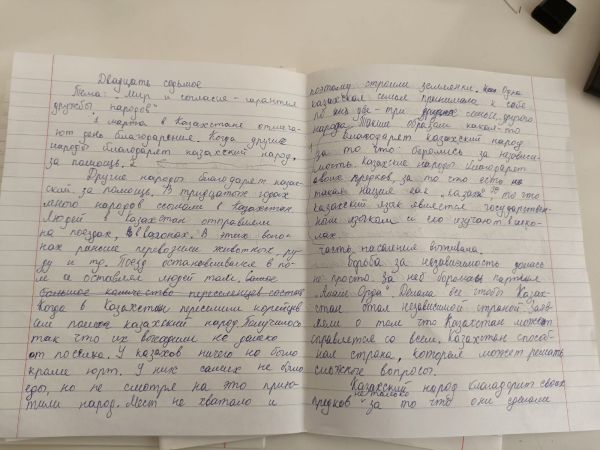 Двадцать седьмое
Тема: "Мир и согласие - гарантия
дружбы народов"
1 марта в Казахстане отмеча-
ют день благодарения. Когда другие
народы благодарят казахский народ,
за помощь.
Другие народы благодарят казах-
ский за помощь. В тридцатых годах
много народов ссылали в Казахстан.
Людей в Казахстан отправляли
на поездах, в вагонах. В этих ваго-
нах раньше перевозили животных, ру-
ду и тр. Поезд останавливался в по-
ле и оставлял людей там.
большое количество переселенцев
Когда в Казахстан переселили корейцев
им казахский народ. Получилось
так что их высадили не далеко
от посёлка. У казахов ничего не было
кроме юрт. У них самих не было
еды, но не смотря на это прию-
тили народ. Мест не хватало и
поэтому строили землянки. Одна
казахская семья принимала к себе
по две-три семьи другого
народа. Таким образом какая-то
часть населения выжила.
благодарят казахский народ
за то что: боролись за независи-
мость. Казахские народы благодарят
своих предков, за то что есть
такая нация как "казахи", то что
казахский язык является государствен-
ным языком и его изучают в шко-
лах.
Борьба за независимость далась
не просто. За неё боролась партия
"Алаш Орда". Делала всё чтобы Казах-
стан стал независимой страной. Заяв-
ляли о том что Казахстан может
справится со всем. Казахстан способ-
ная страна, которая может решать
сложные вопросы.
Казахский народ благодарит своих
предков не только за то что они сделали